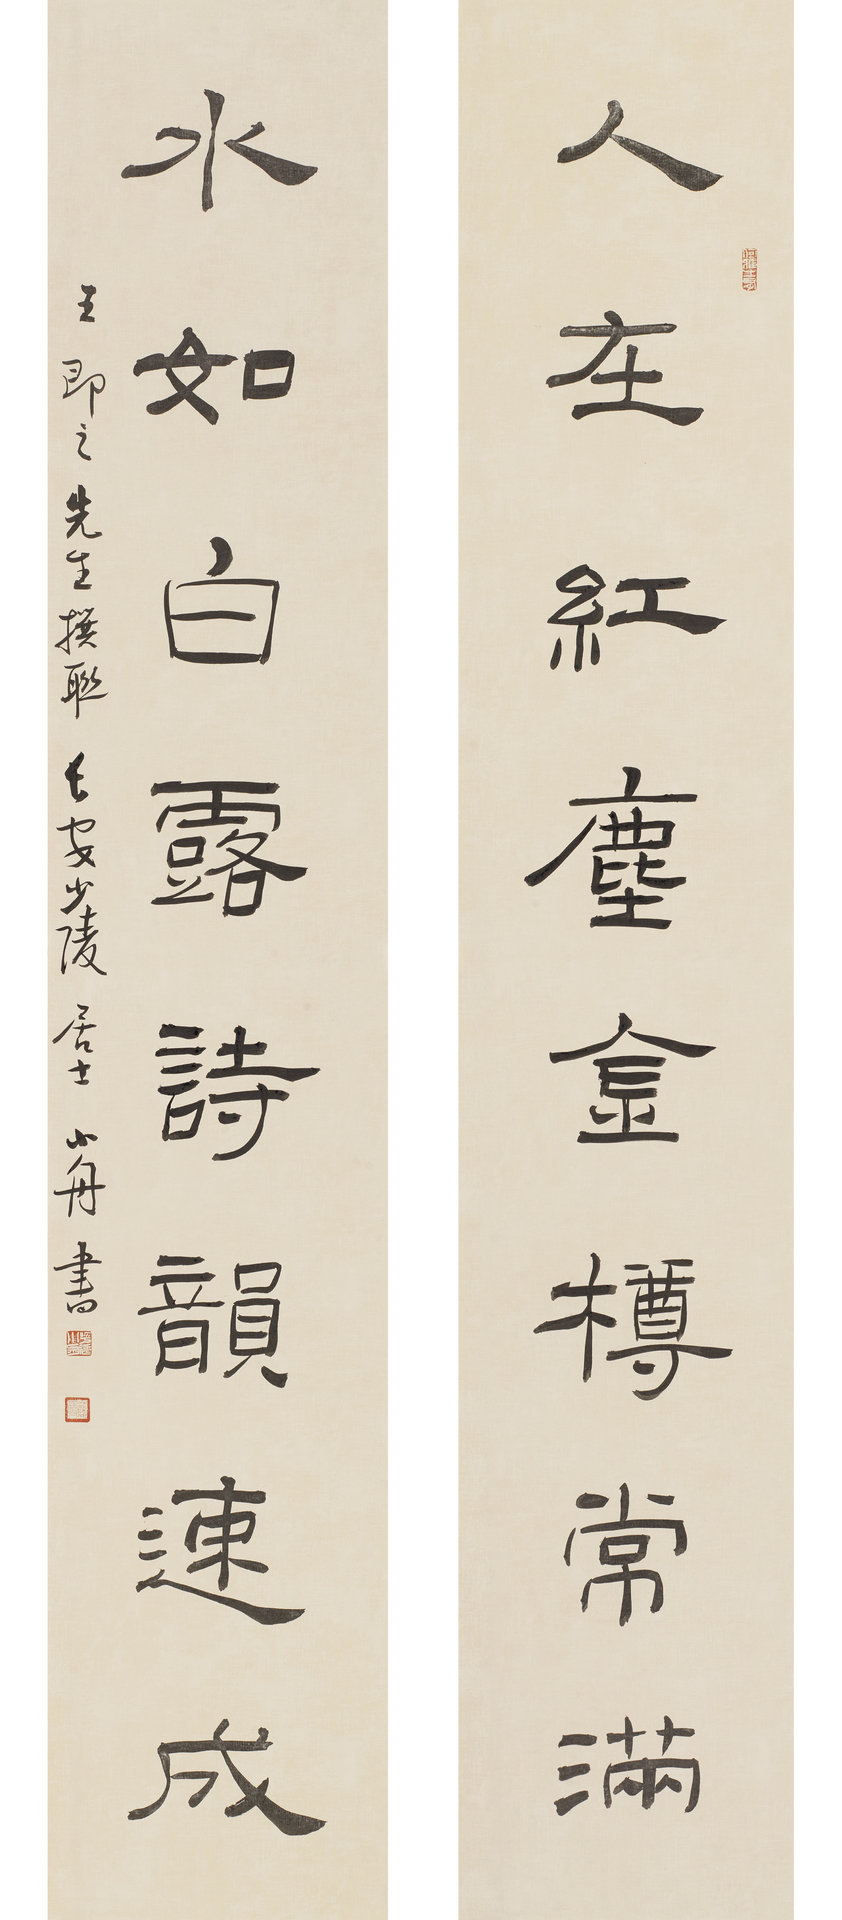 人在紅塵金樽常滿
水如白露詩韻速成
王即之先生撰聯 長安少陵居士 小舟書